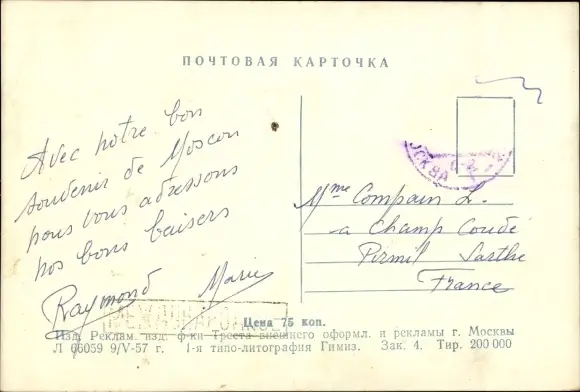 ПОЧТОВАЯ КАРТОЧКА
Avec notre bon
souvenir de Moscou
nous vous adressons
nos bons baisers
Raymond Marie
МОСКВА
Mme Compain L.
a Champ Coudé
Pirmil Sarthe
France
МЕЖДУНАРОДНОЕ
Цена 75 коп.
Изд. Реклам. изд. ф-ки Треста внешнего оформл. и рекламы г. Москвы
Л 66059 9/V-57 г. 1-я типо-литография Гимиз. Зак. 4. Тир. 200 000